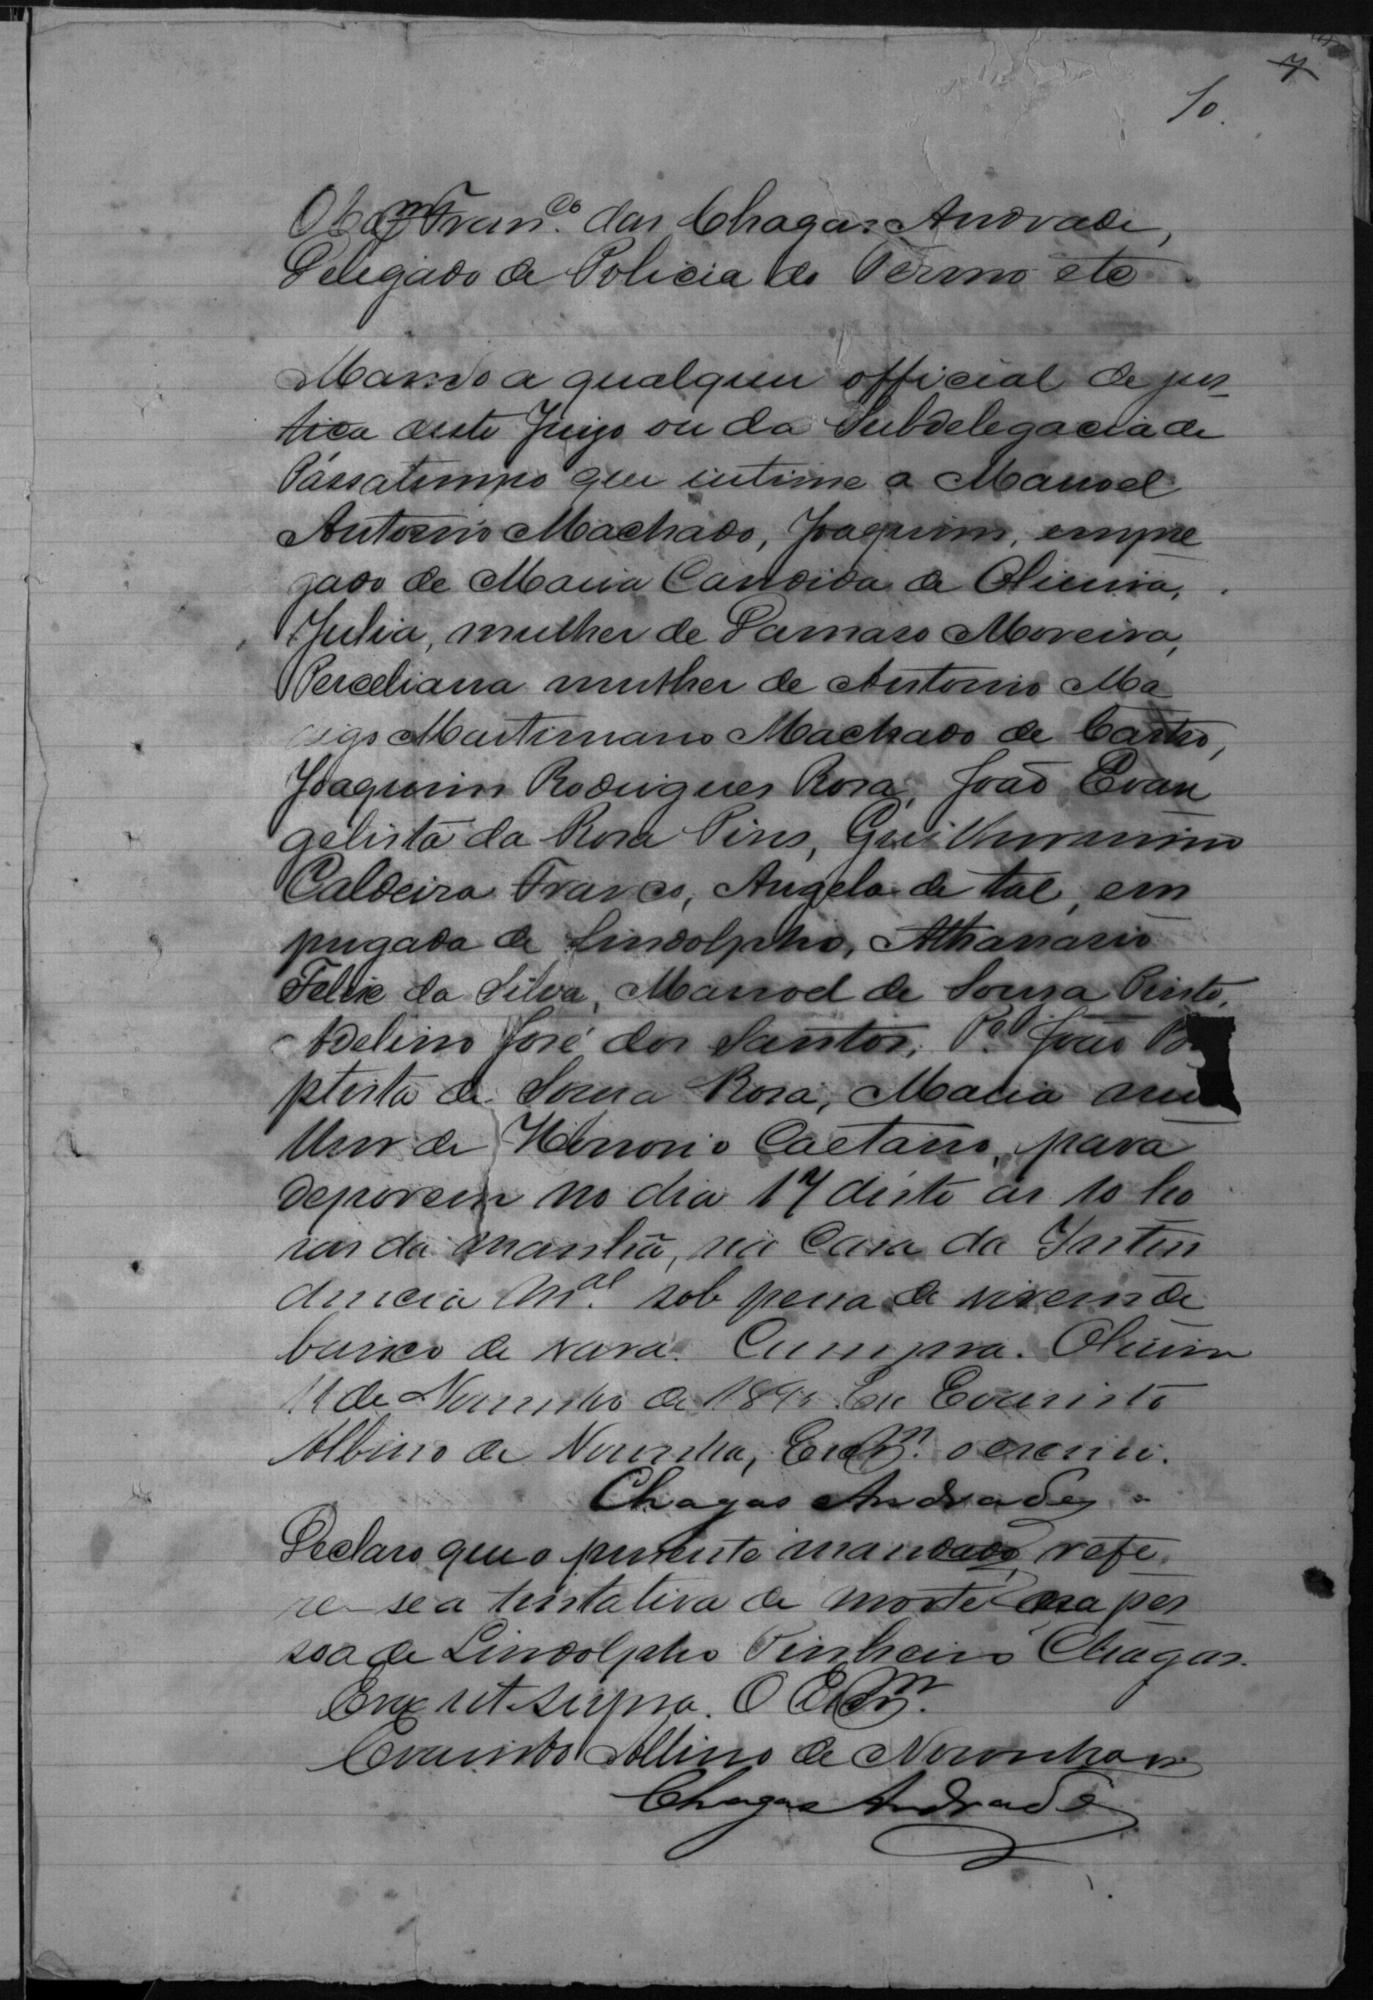 10.
7
Fran.co das Chagas Andrade,
Delegado de Policia do Termo etc
Mando a qualquer official de jus-
tica deste Juizo ou da Subdelegacia de
Passatempo que intime a Manoel
Antonio Machado, Joaquim, empre
gado de Maria Candida de Oliveira,
Julia, mulher de Damaso Moreira,
Perceliana mulher de Antonio Ma
Martimiano Machado de Castro,
Joaquim Rodrigues Rosa, João Evan
gelista da Rosa Pires, Guilhermino
Caldeira Franco, Angela de tal, em
pregada de Lindolpho, Athanasio
Felix da Silva, Manoel de Souza Pinto,
Adelino José dos Santos, Pe. João Ba
ptista de Souza Rosa, Maria mu
lher de Honorio Caetano, para
deporem no dia 17 deste as 10 ho
ras da manhã, na Casa da Inten
dencia M.al sob pena de virem de
baixo de vara. Cumpra. Oliveira
11 de Novembro de 189 Eu Evaristo
Albino de Noronha, Escr.m o escrevi.
Chagas Andrade
Declaro que o presente mandado, refe
re-se a tentativa de morte na pes
soa de Lindolpho Pinheiro Chagas.
Era ut supra. O Escr.m
Evaristo Albino de Noronha
Chagas Andrade